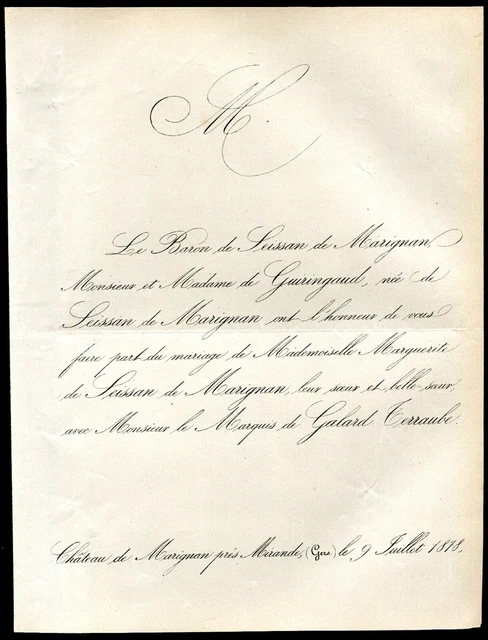 M.
Le Baron de Seissan de Marignan
Monsieur et Madame de Guiringaud, née de
Seissan de Marignan ont l'honneur de vous
faire part du mariage de Mademoiselle Marguerite
de Seissan de Marignan, leur sœur et belle-sœur,
avec Monsieur le Marquis de Galard Terraube.
Château de Marignan près Mirande, (Gers.) le 9 Juillet 1878.